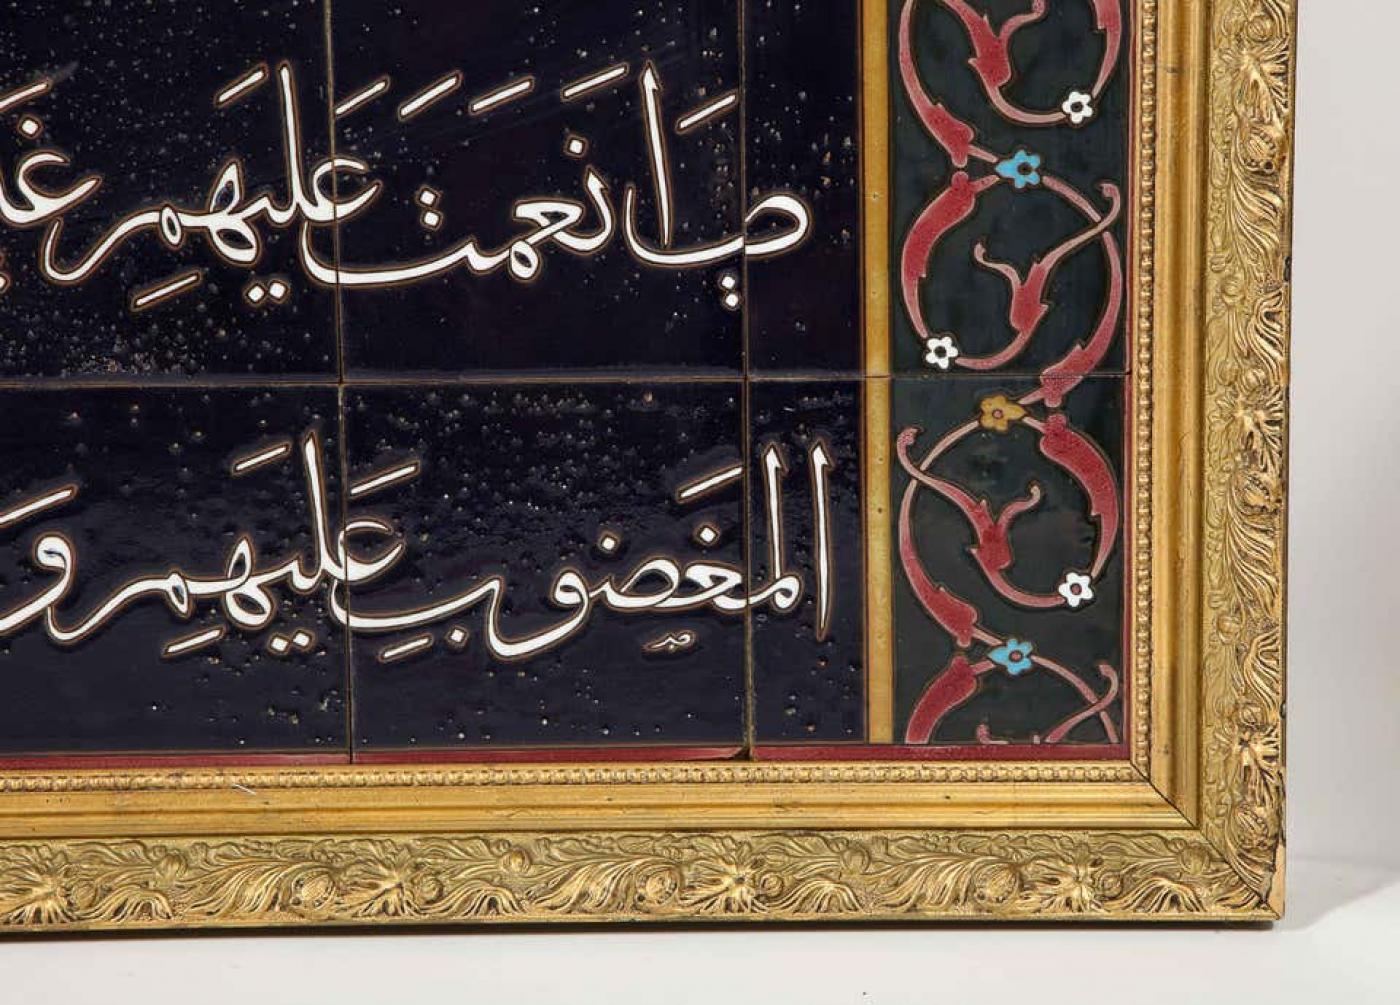 اَنعَمتَ عَلَيهِم
المَغضوبِ عَلَيهِم وَ